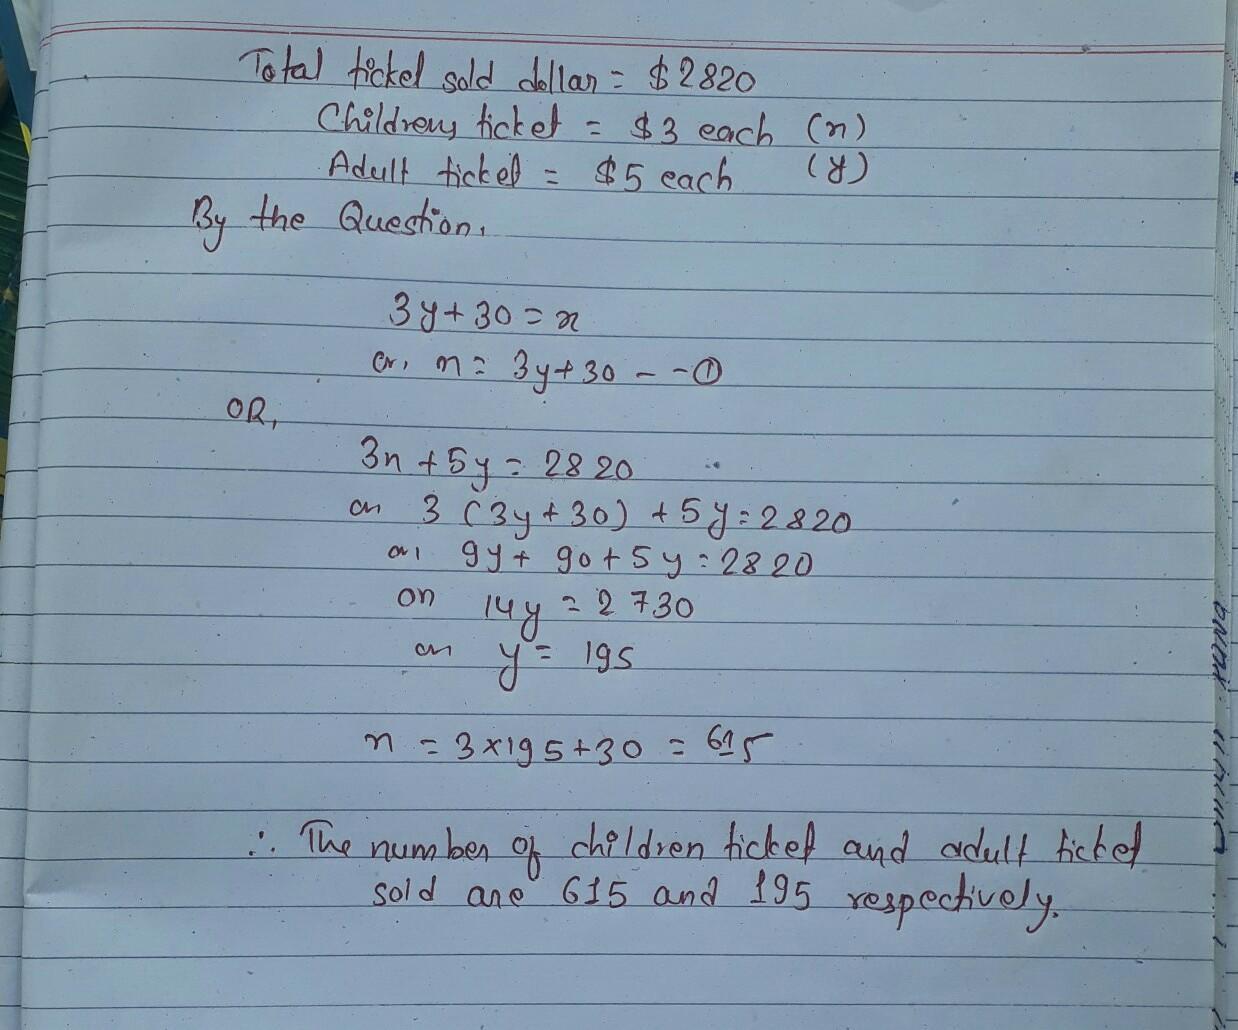 Total ticket sold dollar = $2820
Childrens ticket = $3 each (x)
Adult ticket = $5 each (y)
By the Question,
3y+30=x
or, x= 3y+30 --①
OR,
3x+5y=2820
or 3(3y+30)+5y=2820
or, 9y+90+5y=2820
or 14y=2730
or y= 195
x = 3×195+30 = 615
∴ The number of children ticket and adult ticket
sold are 615 and 195 respectively.